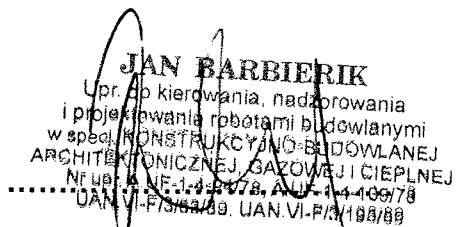 JAN BARBIERIK
Upr. do kierowania, nadzorowania
i projektowania robotami budowlanymi
w specj. KONSTRUKCYJNO-BUDOWLANEJ
ARCHITEKTONICZNEJ, GAZOWEJ I CIEPLNEJ
Nr upr. A.UF-1-4-109/78
UAN.VI-F/3/198/89